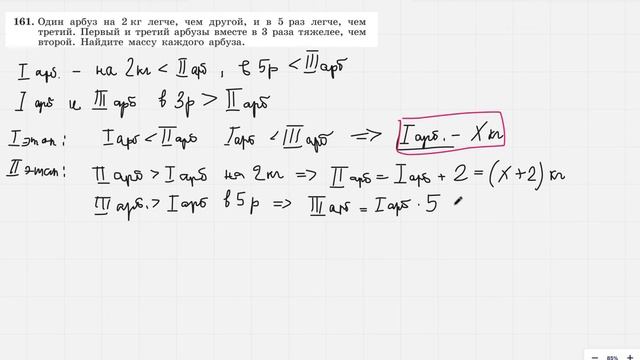 161. Один арбуз на 2 кг легче, чем другой, и в 5 раз легче, чем
третий. Первый и третий арбузы вместе в 3 раза тяжелее, чем
второй. Найдите массу каждого арбуза.
I арб. – на 2кг < II арб , в 5р < III арб
I арб и III арб в 3р > II арб
I этап: I арб < II арб I арб < III арб => I арб. – X кг
II этап: II арб > I арб на 2 кг => II арб = I арб + 2 = (x+2) кг
III арб. > I арб в 5 р => III арб = I арб · 5
85%